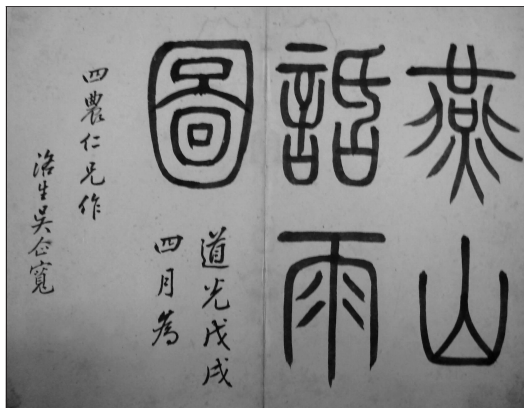 燕山
話雨
圖
道光戊戌
四月為
四農仁兄作
洛生吳仝寬